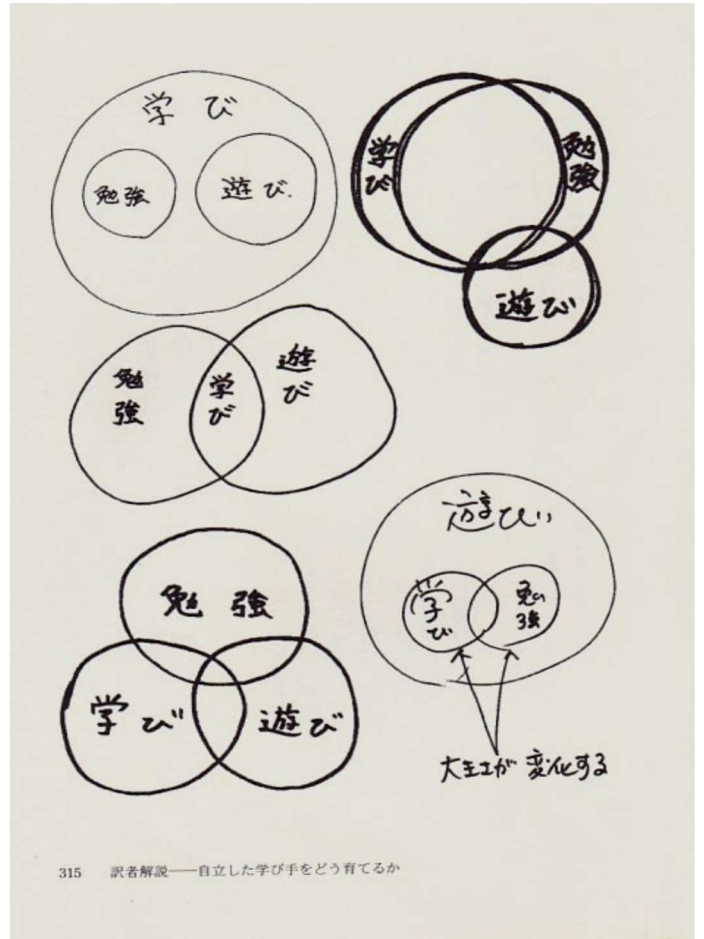 学び
勉強
遊び
学び
勉強
遊び
勉強
学び
遊び
勉強
学び
遊び
遊び
学び
勉強
大きさが変化する
315 訳者解説——自立した学び手をどう育てるか